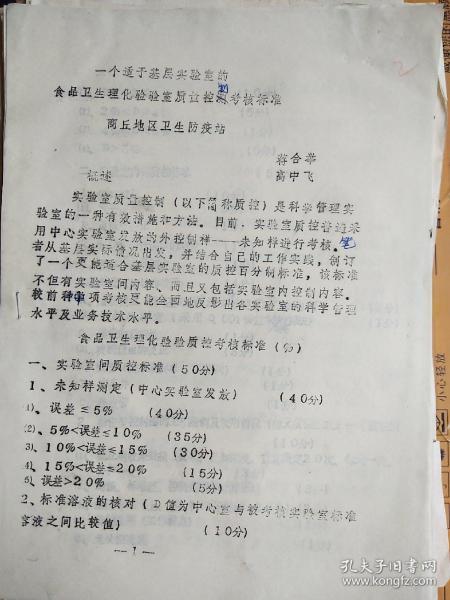 一个适于基层实验室的
食品卫生理化验验室质量控制考核标准
商丘地区卫生防疫站
蒋合举
高中飞
概述
实验室质量控制(以下简称质控)是科学管理实
验室的一种有效措施和方法。目前,实验室质控普遍采
用中心实验室发放的外控制样——未知样进行考核。笔
者从基层实际情况出发,并结合自己的工作实践,制订
了一个更能适合基层实验室的质控百分制标准,该标准
不但有实验室间内容、而且又包括实验室内控制内容。
较前种单项考核更能全面地反影出各实验室的科学管理
水平及业务技术水平。
食品卫生理化验验质控考核标准(%)
一、实验室间质控标准(50分)
1、未知样测定(中心实验室发放) (40分)
1)、误差≤5% (40分)
(2)、5%<误差≤10% (35分)
3)、10%<误差≤15% (30分)
4)、15%<误差≤20% (15分)
5)、误差>20% (5分)
2、标准溶液的核对(D值为中心室与被考核实验室标准
容液之间比较值) (10分)
—1—
2
小心轻放
孔夫子旧书网
www.kongfz.com